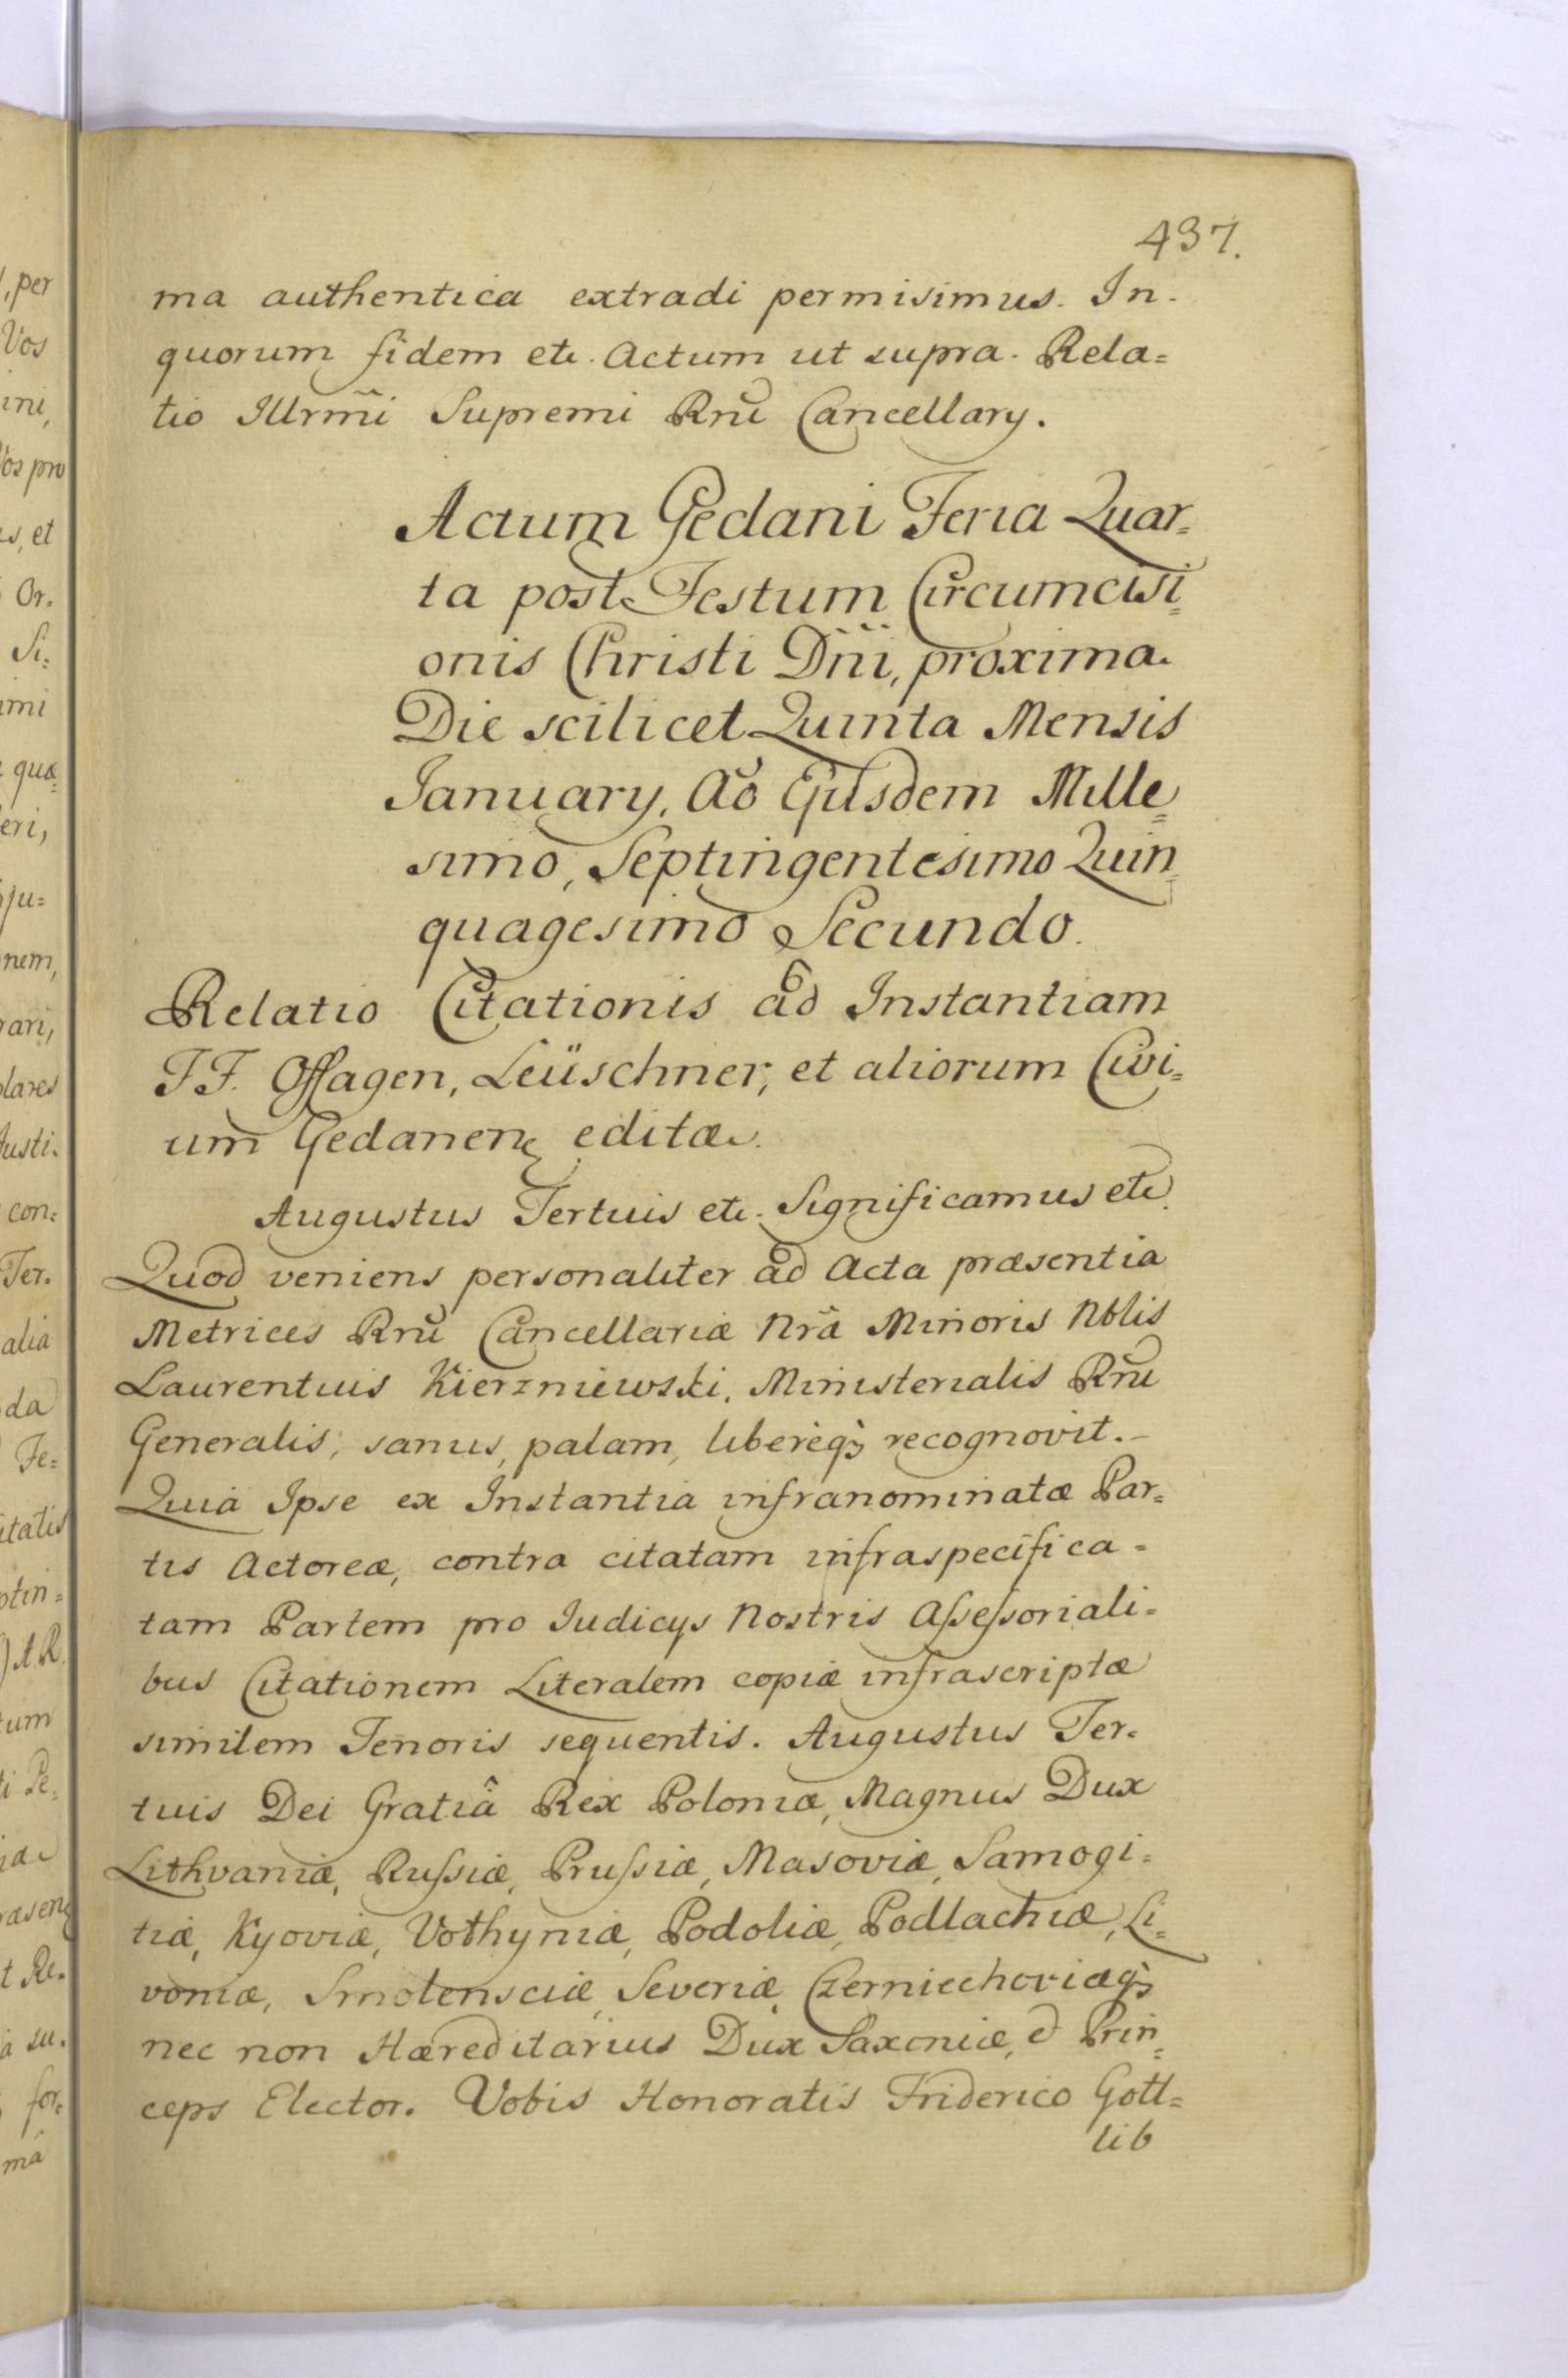 437.
ma authentica extradi permisimus. In-
quorum fidem etc. Actum ut supra. Rela=
tio Illrm̃i Supremi Rnũ Cancellary.
Actum Gedani Feria Quar=
ta post Festum Circumcisi=
onis Christi Dñi, proxima.
Die scilicet Quinta Mensis
January, Aõ Ejusdem Mille=
simo, Septingentesimo Quin=
quagesimo Secundo.
Relatio Citationis ad Instantiam
FF. Offagen, Leüschner, et aliorum Civi=
um Gedanen editæ.
Augustus Tertius etc. Significamus etc.
Quod veniens personaliter ad Acta præsentia
Metrices Rnũ Cancellariæ Nrã Minoris Nblis
Laurentius Kierzniewski, Ministerialis Rnũ
Generalis, sanus, palam, libereq̀; recognovit.-
Quia Ipse ex Instantia infranominatæ Par=
tis Actoreæ, contra citatam infraspecifica=
tam Partem pro Iudicys Nostris Aſseſsoriali=
bus Citationem Literalem copiæ infrascriptæ
similem Tenoris sequentis. Augustus Ter=
tius Dei Gratiâ Rex Poloniæ, Magnus Dux
Lithvaniæ, Ruſsiæ, Pruſsiæ, Masoviæ, Samogi=
tiæ, Kyoviæ, Volhyniæ, Podoliæ, Podlachiæ, Li=
voniæ, Smolensciæ, Severiæ, Czerniechoviæq̀;
nec non Hæreditarius Dux Saxoniæ, & Prin=
ceps Elector. Vobis Honoratis Friderico Gott=
lib
, per
Vos
ini,
Vos pro
us, et
Or.
Si=
imi
quæ=
eri,
ju=
nem,
rari,
lares
Justi=
con=
Ter=
alia
da
Fe=
itatis
ptin=
A.R.
tum
ti Pe=
iæ
ræsen
t Re=
a su=
for=
mâ